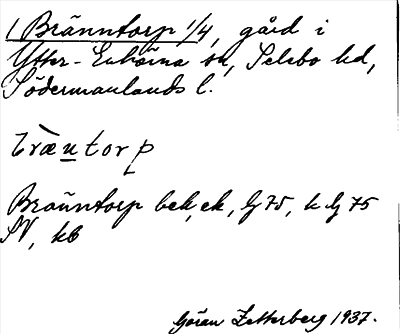 1 Bränntorp 1/4, gård i
Ytter-Enhörna sn, Selebo hd,
Södermanlands l.
bræ̀ntorp
Bränntorp bek, ek, Lj 75, k Lj 75
SV, kb
Göran Zetterberg 1937.